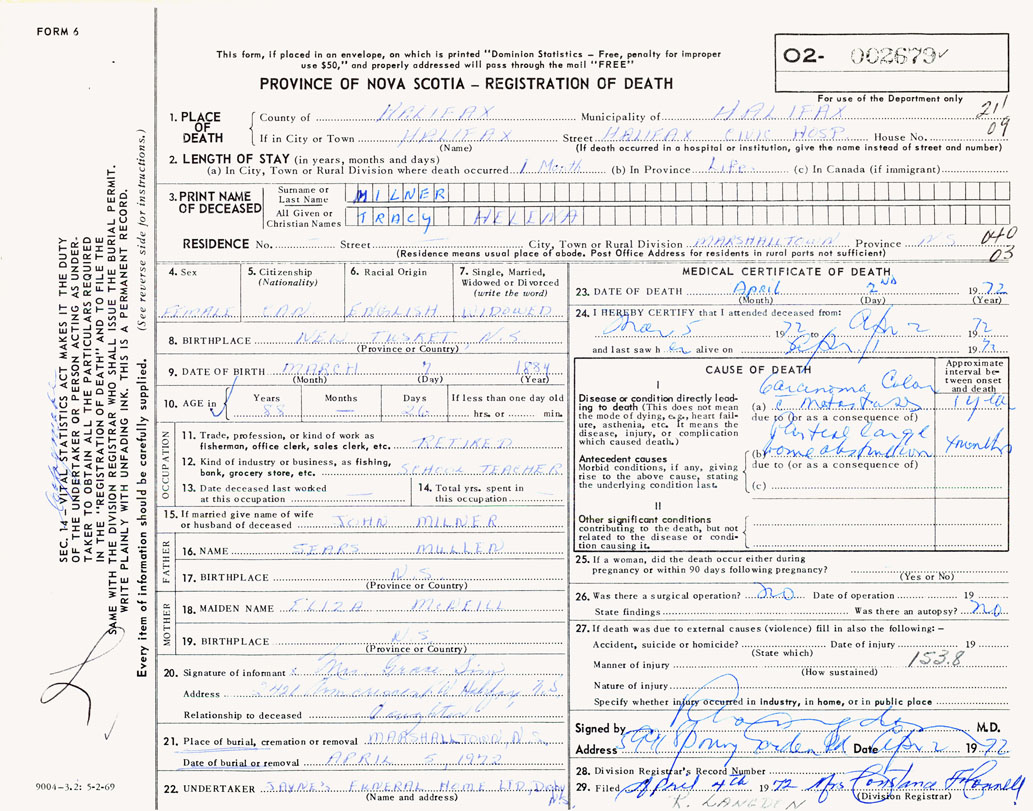 FORM 6
This form, if placed in an envelope, on which is printed "Dominion Statistics – Free, penalty for improper
use $50," and properly addressed will pass through the mail "FREE"
PROVINCE OF NOVA SCOTIA – REGISTRATION OF DEATH
02- 002679
For use of the Department only
211
09
1. PLACE OF DEATH
County of HALIFAX Municipality of HALIFAX
If in City or Town HALIFAX Street HALIFAX CIVIC HOSP House No.
(Name) (If death occurred in a hospital or institution, give the name instead of street and number)
2. LENGTH OF STAY (in years, months and days)
(a) In City, Town or Rural Division where death occurred 1 Month (b) In Province Life (c) In Canada (if immigrant)
3. PRINT NAME OF DECEASED
Surname or Last Name MILNER
All Given or Christian Names TRACY HELENA
RESIDENCE No. Street City, Town or Rural Division MARSHALLTOWN Province N.S
(Residence means usual place of abode. Post Office Address for residents in rural parts not sufficient)
040
03
4. Sex
FEMALE
5. Citizenship
(Nationality)
CAN
6. Racial Origin
ENGLISH
7. Single, Married,
Widowed or Divorced
(write the word)
WIDOWED
8. BIRTHPLACE NEW TUSKET, N.S
(Province or Country)
9. DATE OF BIRTH MARCH 7 1884
(Month) (Day) (Year)
10. AGE in
Years Months Days If less than one day old
88 — 26 hrs. or min.
OCCUPATION
11. Trade, profession, or kind of work as
fisherman, office clerk, sales clerk, etc. RETIRED
12. Kind of industry or business, as fishing,
bank, grocery store, etc. SCHOOL TEACHER
13. Date deceased last worked
at this occupation —
14. Total yrs. spent in
this occupation —
15. If married give name of wife
or husband of deceased JOHN MILNER
FATHER
16. NAME SEARS MULLEN
17. BIRTHPLACE N.S
(Province or Country)
MOTHER
18. MAIDEN NAME ELIZA McNEILL
19. BIRTHPLACE N.S
(Province or Country)
20. Signature of informant Mrs Grace
Address Halifax N.S
Relationship to deceased Daughter
21. Place of burial, cremation or removal MARSHALLTOWN, N.S.
Date of burial or removal APRIL 5, 1972
22. UNDERTAKER JAYNE'S FUNERAL HOME LTD, Digby NS
(Name and address)
MEDICAL CERTIFICATE OF DEATH
23. DATE OF DEATH April 2ND 1972
(Month) (Day) (Year)
24. I HEREBY CERTIFY that I attended deceased from:
Mar 5 1972 to Apr 2 1972
and last saw her alive on Apr 1 1972
CAUSE OF DEATH
Approximate
interval be-
tween onset
and death
I
Disease or condition directly lead-
ing to death (This does not mean
the mode of dying, e.g., heart fail-
ure, asthenia, etc. It means the
disease, injury, or complication
which caused death.)
(a) Carcinoma Colon
c Metastases 1 year
due to (or as a consequence of)
Antecedent causes
Morbid conditions, if any, giving
rise to the above cause, stating
the underlying condition last.
(b) Partial large
bowel obstruction 4 months
due to (or as a consequence of)
(c)
II
Other significant conditions
contributing to the death, but not
related to the disease or condi-
tion causing it.
25. If a woman, did the death occur either during
pregnancy or within 90 days following pregnancy?
(Yes or No)
26. Was there a surgical operation? NO Date of operation 19
State findings Was there an autopsy? NO
27. If death was due to external causes (violence) fill in also the following: –
Accident, suicide or homicide? Date of injury 19
(State which)
153.8
Manner of injury
(How sustained)
Nature of injury
Specify whether injury occurred in industry, in home, or in public place
Signed by M.D.
Address Date Apr 2 1972
28. Division Registrar's Record Number
29. Filed April 4th 1972 Mrs Constance
(Division Registrar)
K. LANGDEN
SEC. 14 – VITAL STATISTICS ACT MAKES IT THE DUTY
OF THE UNDERTAKER OR PERSON ACTING AS UNDER-
TAKER TO OBTAIN ALL THE PARTICULARS REQUIRED
IN THE "REGISTRATION OF DEATH" AND TO FILE THE
SAME WITH THE DIVISION REGISTRAR WHO SHALL ISSUE THE BURIAL PERMIT.
WRITE PLAINLY WITH UNFADING INK. THIS IS A PERMANENT RECORD.
Every item of information should be carefully supplied. (See reverse side for instructions.)
9004–3.2: 5-2-69